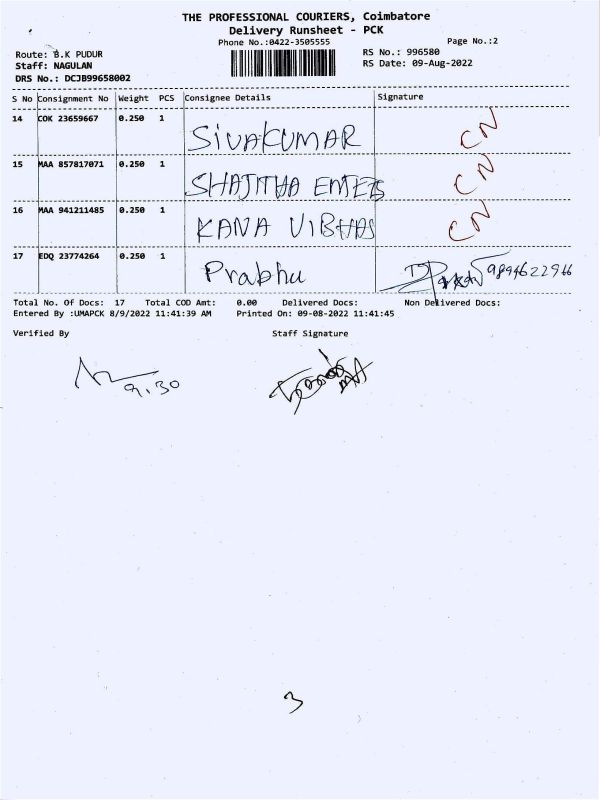 THE PROFESSIONAL COURIERS, Coimbatore
Delivery Runsheet - PCK
Phone No.:0422-3505555
Page No.:2
Route: B.K PUDUR
RS No.: 996580
Staff: NAGULAN
RS Date: 09-Aug-2022
DRS No.: DCJB99658002
S No Consignment No Weight PCS Consignee Details Signature
14 COK 23659667 0.250 1 SIVAKUMAR CN
15 MAA 857817071 0.250 1 SHAJITHA CN
16 MAA 941211485 0.250 1 KANA VIBHAS CN
17 EDQ 23774264 0.250 1 Prabhu
Total No. Of Docs: 17 Total COD Amt: 0.00 Delivered Docs: Non Delivered Docs:
Entered By :UMAPCK 8/9/2022 11:41:39 AM Printed On: 09-08-2022 11:41:45
Verified By Staff Signature
9.30
3